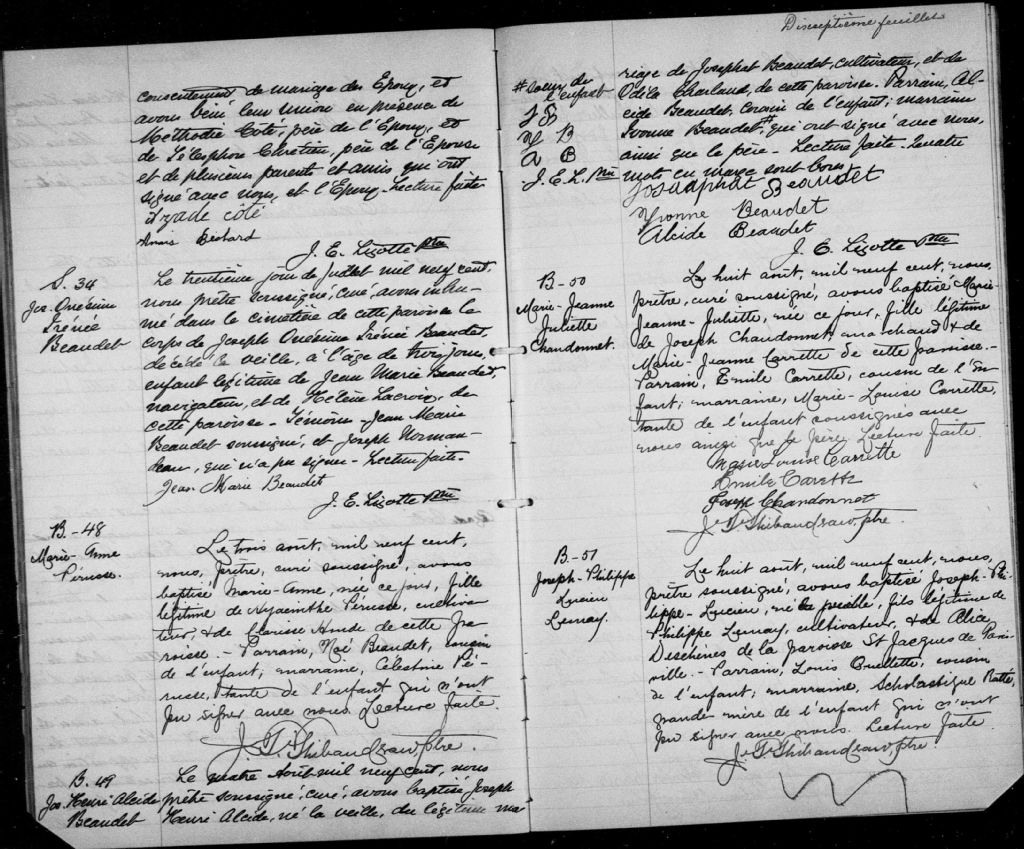 consentement de mariage des Epoux, et
avons béni leur union en présence de
Méthodie Côté, père de l'Epoux, et
de Télesphore Chrétien, père de l'Epouse
et de plusieurs parents et amis qui ont
signé avec nous, et l'Epoux - Lecture faite
côté
Anais Bechard
J. E. Lizotte Ptre
S. 34
Jos. Onésime
Irénée
Beaudet
Le trentième jour de Juillet mil neuf cent,
nous prêtre soussigné, curé, avons inhu-
mé dans le cimetière de cette paroisse le
corps de Joseph Onésime Irénée Beaudet,
décédé la veille, à l'âge de jours,
enfant légitime de Jean Marie Beaudet,
navigateur, et de Hélène Lacroix, de
cette paroisse - Témoins Jean Marie
Beaudet soussigné, et Joseph Norman-
deau, qui n'a pu signer - Lecture faite.
Jean Marie Beaudet
J. E. Lizotte Ptre
B. - 48
Marie-Anne
Pérusse.
Le trois août, mil neuf cent,
nous, prêtre, curé soussigné, avons
baptisé Marie-Anne, née ce jour, fille
légitime de Hyacinthe Pérusse, cultiva
teur, & de Clarisse Houde de cette pa
roisse. - Parrain, Noé Beaudet, cousin
de l'enfant; marraine, Célestine Pé-
russe, tante de l'enfant qui n'ont
pu signer avec nous. Lecture faite.
ptre.
B. 49
Jos. Henri Alcide
Beaudet
Le quatre Août mil neuf cent, nous
prêtre soussigné, curé, avons baptisé Joseph
Henri Alcide, né la veille, du légitime ma
Dixseptième feuillet
# soeur de
l'enfant
J B
Y B
A B
J. E. L. Ptre
riage de Josaphat Beaudet, cultivateur, et de
Odéla Charland, de cette paroisse. Parrain, Al-
cide Beaudet, cousin de l'enfant; marraine
Yvonne Beaudet,# qui ont signé avec nous,
ainsi que le père - Lecture faite -
mots en marge sont bons
Josaaphat Beaudet
Yvonne Beaudet
Alcide Beaudet
J. E. Lizotte Ptre
B - 50
Marie-Jeanne
Juliette
Chandonnet.
Le huit août, mil neuf cent, nous,
prêtre, curé soussigné, avons baptisé Marie-
Jeanne-Juliette, née ce jour, fille légitime
de Joseph Chandonnet, marchand & de
Marie-Jeanne Carrette de cette paroisse. -
Parrain, Emile Carrette, cousin de l'En
fant; marraine, Marie-Louise Carrette,
tante de l'enfant soussignés avec
nous ainsi que le père. Lecture faite
Marie Louise Carrette
Emile Carette
Joseph Chandonnet
ptre.
B - 51
Joseph-Philippe
Lucien
Lemay.
Le huit août, mil neuf cent, nous,
prêtre soussigné, avons baptisé Joseph-Phi-
lippe-Lucien, né la veille, fils légitime de
Philippe Lemay, cultivateur, & de Alice
Deschênes de la paroisse St Jacques de Paris
ville. - Parrain, Louis Ouellette, cousin
de l'enfant; marraine, Scholastique Ratté,
grande-mère de l'enfant qui n'ont
pu signer avec nous. Lecture faite
ptre.